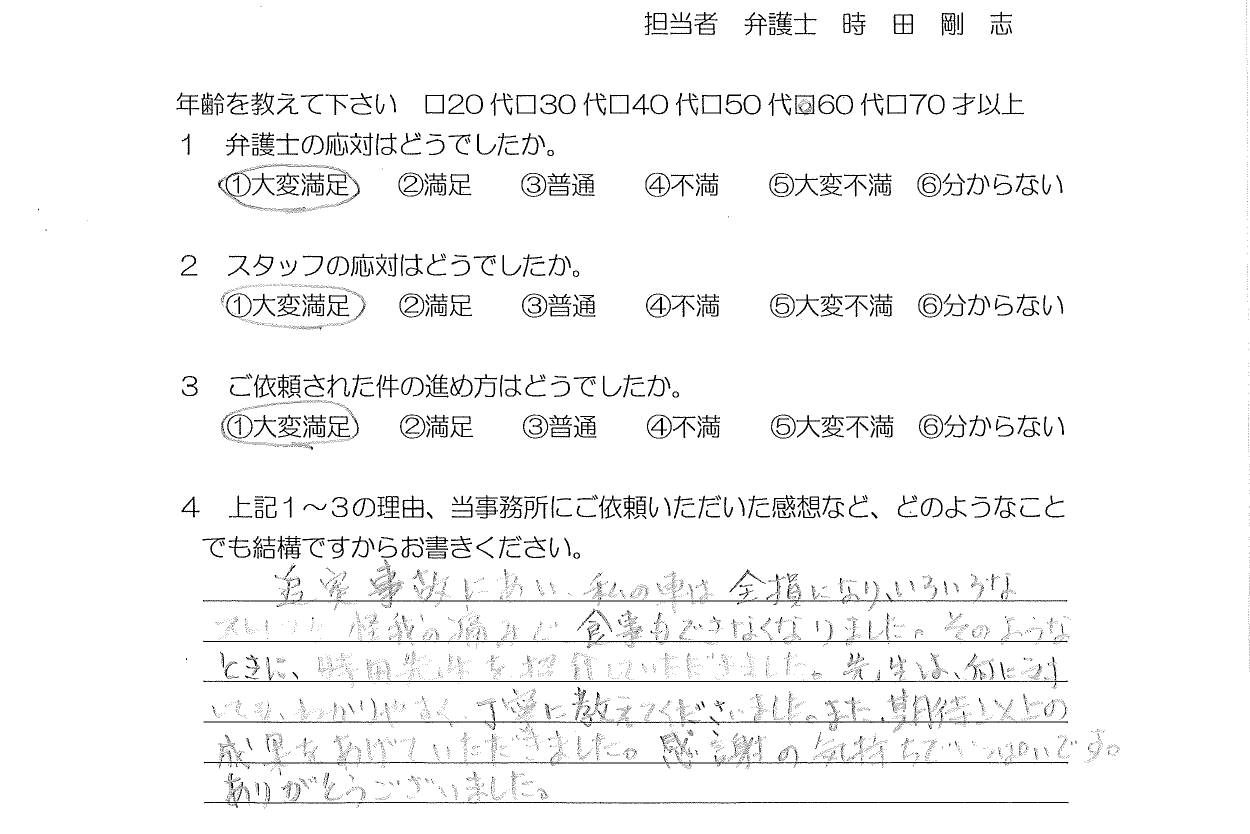 担当者　弁護士　時　田　剛　志
年齢を教えて下さい　□20代□30代□40代□50代☑60代□70才以上
1　弁護士の応対はどうでしたか。
①大変満足　②満足　③普通　④不満　⑤大変不満　⑥分からない
2　スタッフの応対はどうでしたか。
①大変満足　②満足　③普通　④不満　⑤大変不満　⑥分からない
3　ご依頼された件の進め方はどうでしたか。
①大変満足　②満足　③普通　④不満　⑤大変不満　⑥分からない
4　上記1～3の理由、当事務所にご依頼いただいた感想など、どのようなこと
でも結構ですからお書きください。
追突事故にあい、私の車は全損になり、いろいろな
ストレスと怪我の痛みで食事もできなくなりました。そのような
ときに、時田先生を紹介していただきました。先生は、何に対
しても、わかりやすく、丁寧に教えてくださいました。また、期待以上の
成果をあげていただきました。感謝の気持ちでいっぱいです。
ありがとうございました。